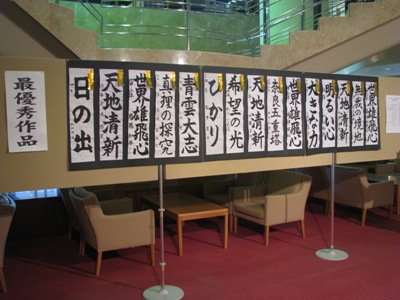 最優秀作品
日の出
天地清新
世界雄飛心
真理の探究
青雲大志
ひかり
希望の光
天地清新
奈良五重塔
世界雄飛心
大きな力
明るい心
天地清新
無我の境地
世界雄飛心